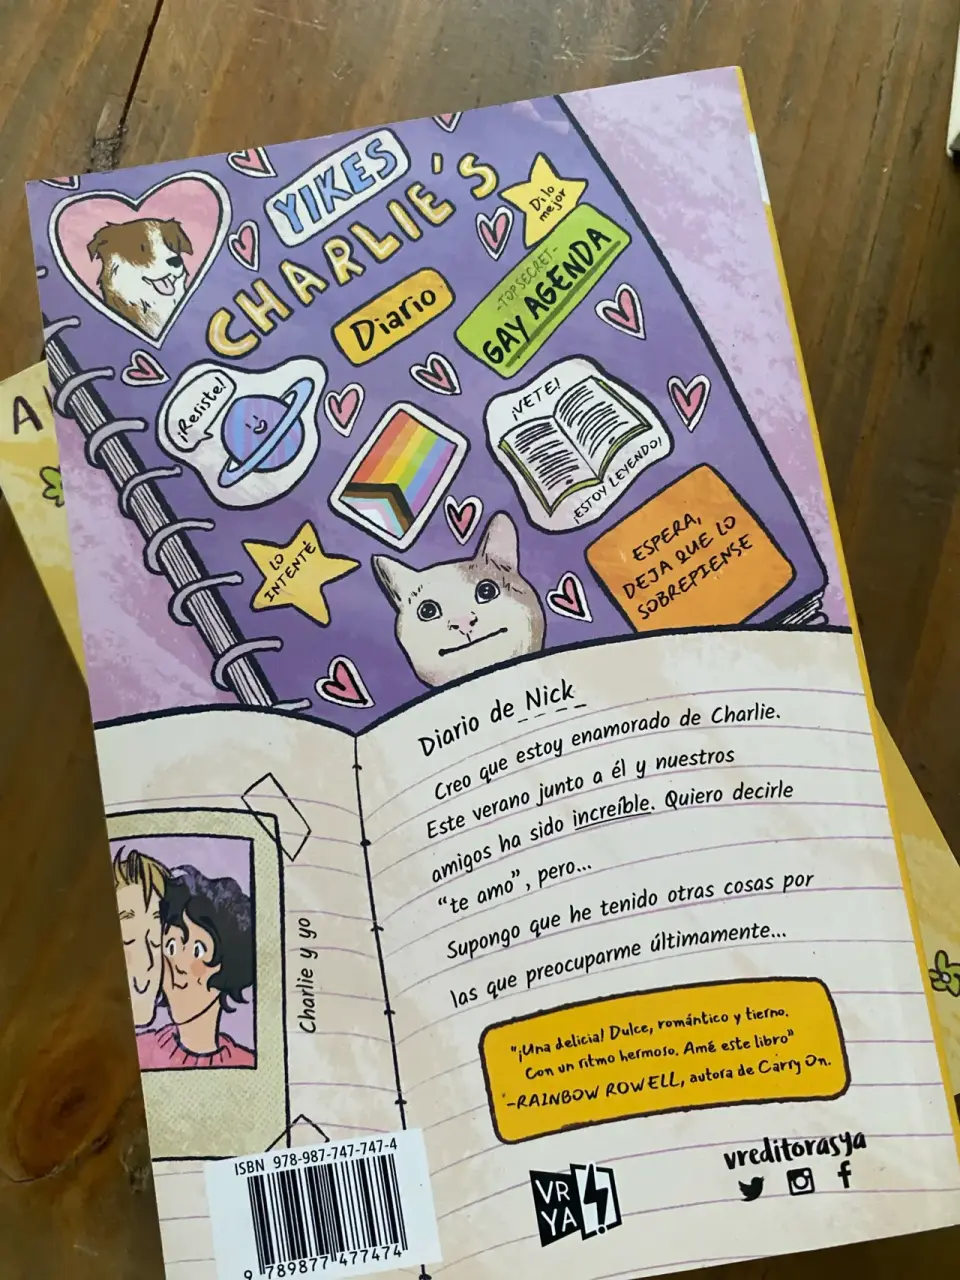 YIKES
CHARLIE'S
Dilo
mejor
Diario
-TOP SECRET-
GAY AGENDA
¡Resiste!
¡VETE!
¡ESTOY LEYENDO!
LO
INTENTÉ
ESPERA,
DEJA QUE LO
SOBREPIENSE
A
Diario de Nick
Creo que estoy enamorado de Charlie.
Este verano junto a él y nuestros
amigos ha sido increíble. Quiero decirle
“te amo”, pero...
Supongo que he tenido otras cosas por
las que preocuparme últimamente...
Charlie y yo
"¡Una delicia! Dulce, romántico y tierno.
Con un ritmo hermoso. Amé este libro"
-RAINBOW ROWELL, autora de Carry On.
ISBN 978-987-747-747-4
9 789877 477474
VR
YA
vreditorasya